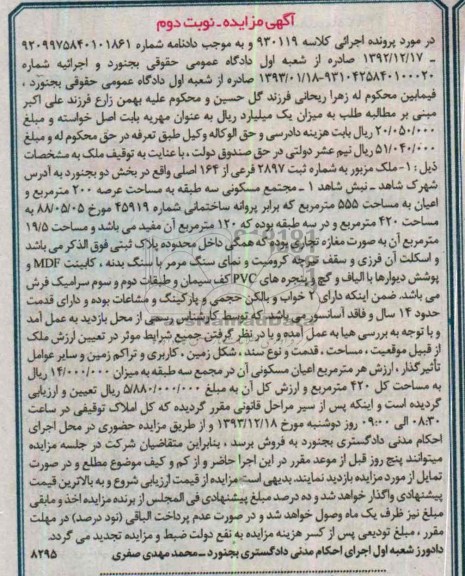 آگهی مزایده ـ نوبت دوم
در مورد پرونده اجرائی کلاسه ۹۳۰۱۱۹ و به موجب دادنامه شماره ۹۲۰۹۹۷۵۸۴۰۱۰۱۸۶۱
ـ ۱۳۹۲/۱۲/۱۷ صادره از شعبه اول دادگاه عمومی حقوقی بجنورد و اجرائیه شماره
۹۳۱۰۴۲۵۸۴۰۱۰۰۰۲۰-۱۳۹۳/۰۱/۱۸ صادره از شعبه اول دادگاه عمومی حقوقی بجنورد ،
فیمابین محکوم له زهرا ریحانی فرزند گل حسین و محکوم علیه بهمن زارع فرزند علی اکبر
مبنی بر مطالبه طلب به میزان یک میلیارد ریال به عنوان مهریه بابت اصل خواسته و مبلغ
۲۰/۰۵۰/۰۰۰ ریال بابت هزینه دادرسی و حق الوکاله وکیل طبق تعرفه در حق محکوم له و مبلغ
۵۱/۰۴۰/۰۰۰ ریال نیم عشر دولتی در حق صندوق دولت ، با عنایت به توقیف ملک به مشخصات
ذیل : ۱- ملک مزبور به شماره ثبت ۲۸۹۷ فرعی از ۱۶۴ اصلی واقع در بخش دو بجنورد به آدرس
شهرک شاهد ـ نبش شاهد ۱ ـ مجتمع مسکونی سه طبقه به مساحت عرصه ۲۰۰ مترمربع و
اعیان به مساحت ۵۵۵ مترمربع که برابر پروانه ساختمانی شماره ۴۵۹۱۹ مورخ ۸۸/۰۵/۰۵ به
مساحت ۴۲۰ مترمربع و در سه طبقه بوده که ۱۲۰ مترمربع آن مفید می باشد و مساحت ۱۹/۵
مترمربع آن به صورت مغازه تجاری بوده که همگی داخل محدوده پلاک ثبتی فوق الذکر می باشد
و اسکلت آن فرزی و سقف تیرچه کرومیت و نمای سنگ مرمر با سنگ بدنه ، کابینت MDF و
پوشش دیوارها با الیاف و گچ و پنجره های PVC کف سیمان و طبقات دوم و سوم سرامیک فرش
می باشد. ضمن اینکه دارای ۲ خواب و بالکن حجمی و پارکینگ و مشاعات بوده و دارای قدمت
حدود ۱۴ سال و فاقد آسانسور می باشد. که توسط کارشناس رسمی از محل بازدید به عمل آمد
و با توجه به بررسی هیا به عمل آمده و با در نظر گرفتن جمیع شرایط موثر در تعیین ارزش ملک
از قبیل موقعیت ، مساحت ، قدمت و نوع سند ، شکل زمین ، کاربری و تراکم زمین و سایر عوامل
تأثیرگذار ، ارزش هر مترمربع اعیان مسکونی آن در مجمع سه طبقه به میزان ۱۴/۰۰۰/۰۰۰ ریال
به مساحت کل ۴۲۰ مترمربع و ارزش کل آن به مبلغ ۵/۸۸۰/۰۰۰/۰۰۰ ریال تعیین و ارزیابی
گردیده است و اینکه پس از سیر مراحل قانونی مقرر گردیده که کل املاک توقیفی در ساعت
۰۸:۳۰ الی ۰۹:۰۰ روز دوشنبه مورخ ۱۳۹۳/۱۲/۱۸ و از طریق مزایده حضوری در محل اجرای
احکام مدنی دادگستری بجنورد به فروش برسد ، بنابراین متقاضیان شرکت در جلسه مزایده
میتوانند پنج روز قبل از موعد مقرر در این اجرا حاضر و از کم و کیف موضوع مطلع و در صورت
تمایل از مورد مزایده بازدید نمایند. بدیهی است مزایده از قیمت ارزیابی شروع و به بالاترین قیمت
پیشنهادی واگذار خواهد شد و ده درصد مبلغ پیشنهادی فی المجلس از برنده مزایده اخذ و مابقی
مبلغ نیز ظرف یک ماه وصول خواهد شد و در صورت عدم پرداخت الباقی (نود درصد) در مهلت
مقرر ، مبلغ تودیعی پس از کسر هزینه مزایده به نفع دولت ضبط و مزایده تجدید می گردد.
دادورز شعبه اول اجرای احکام مدنی دادگستری بجنورد ـ محمد مهدی صفری ۸۲۹۵